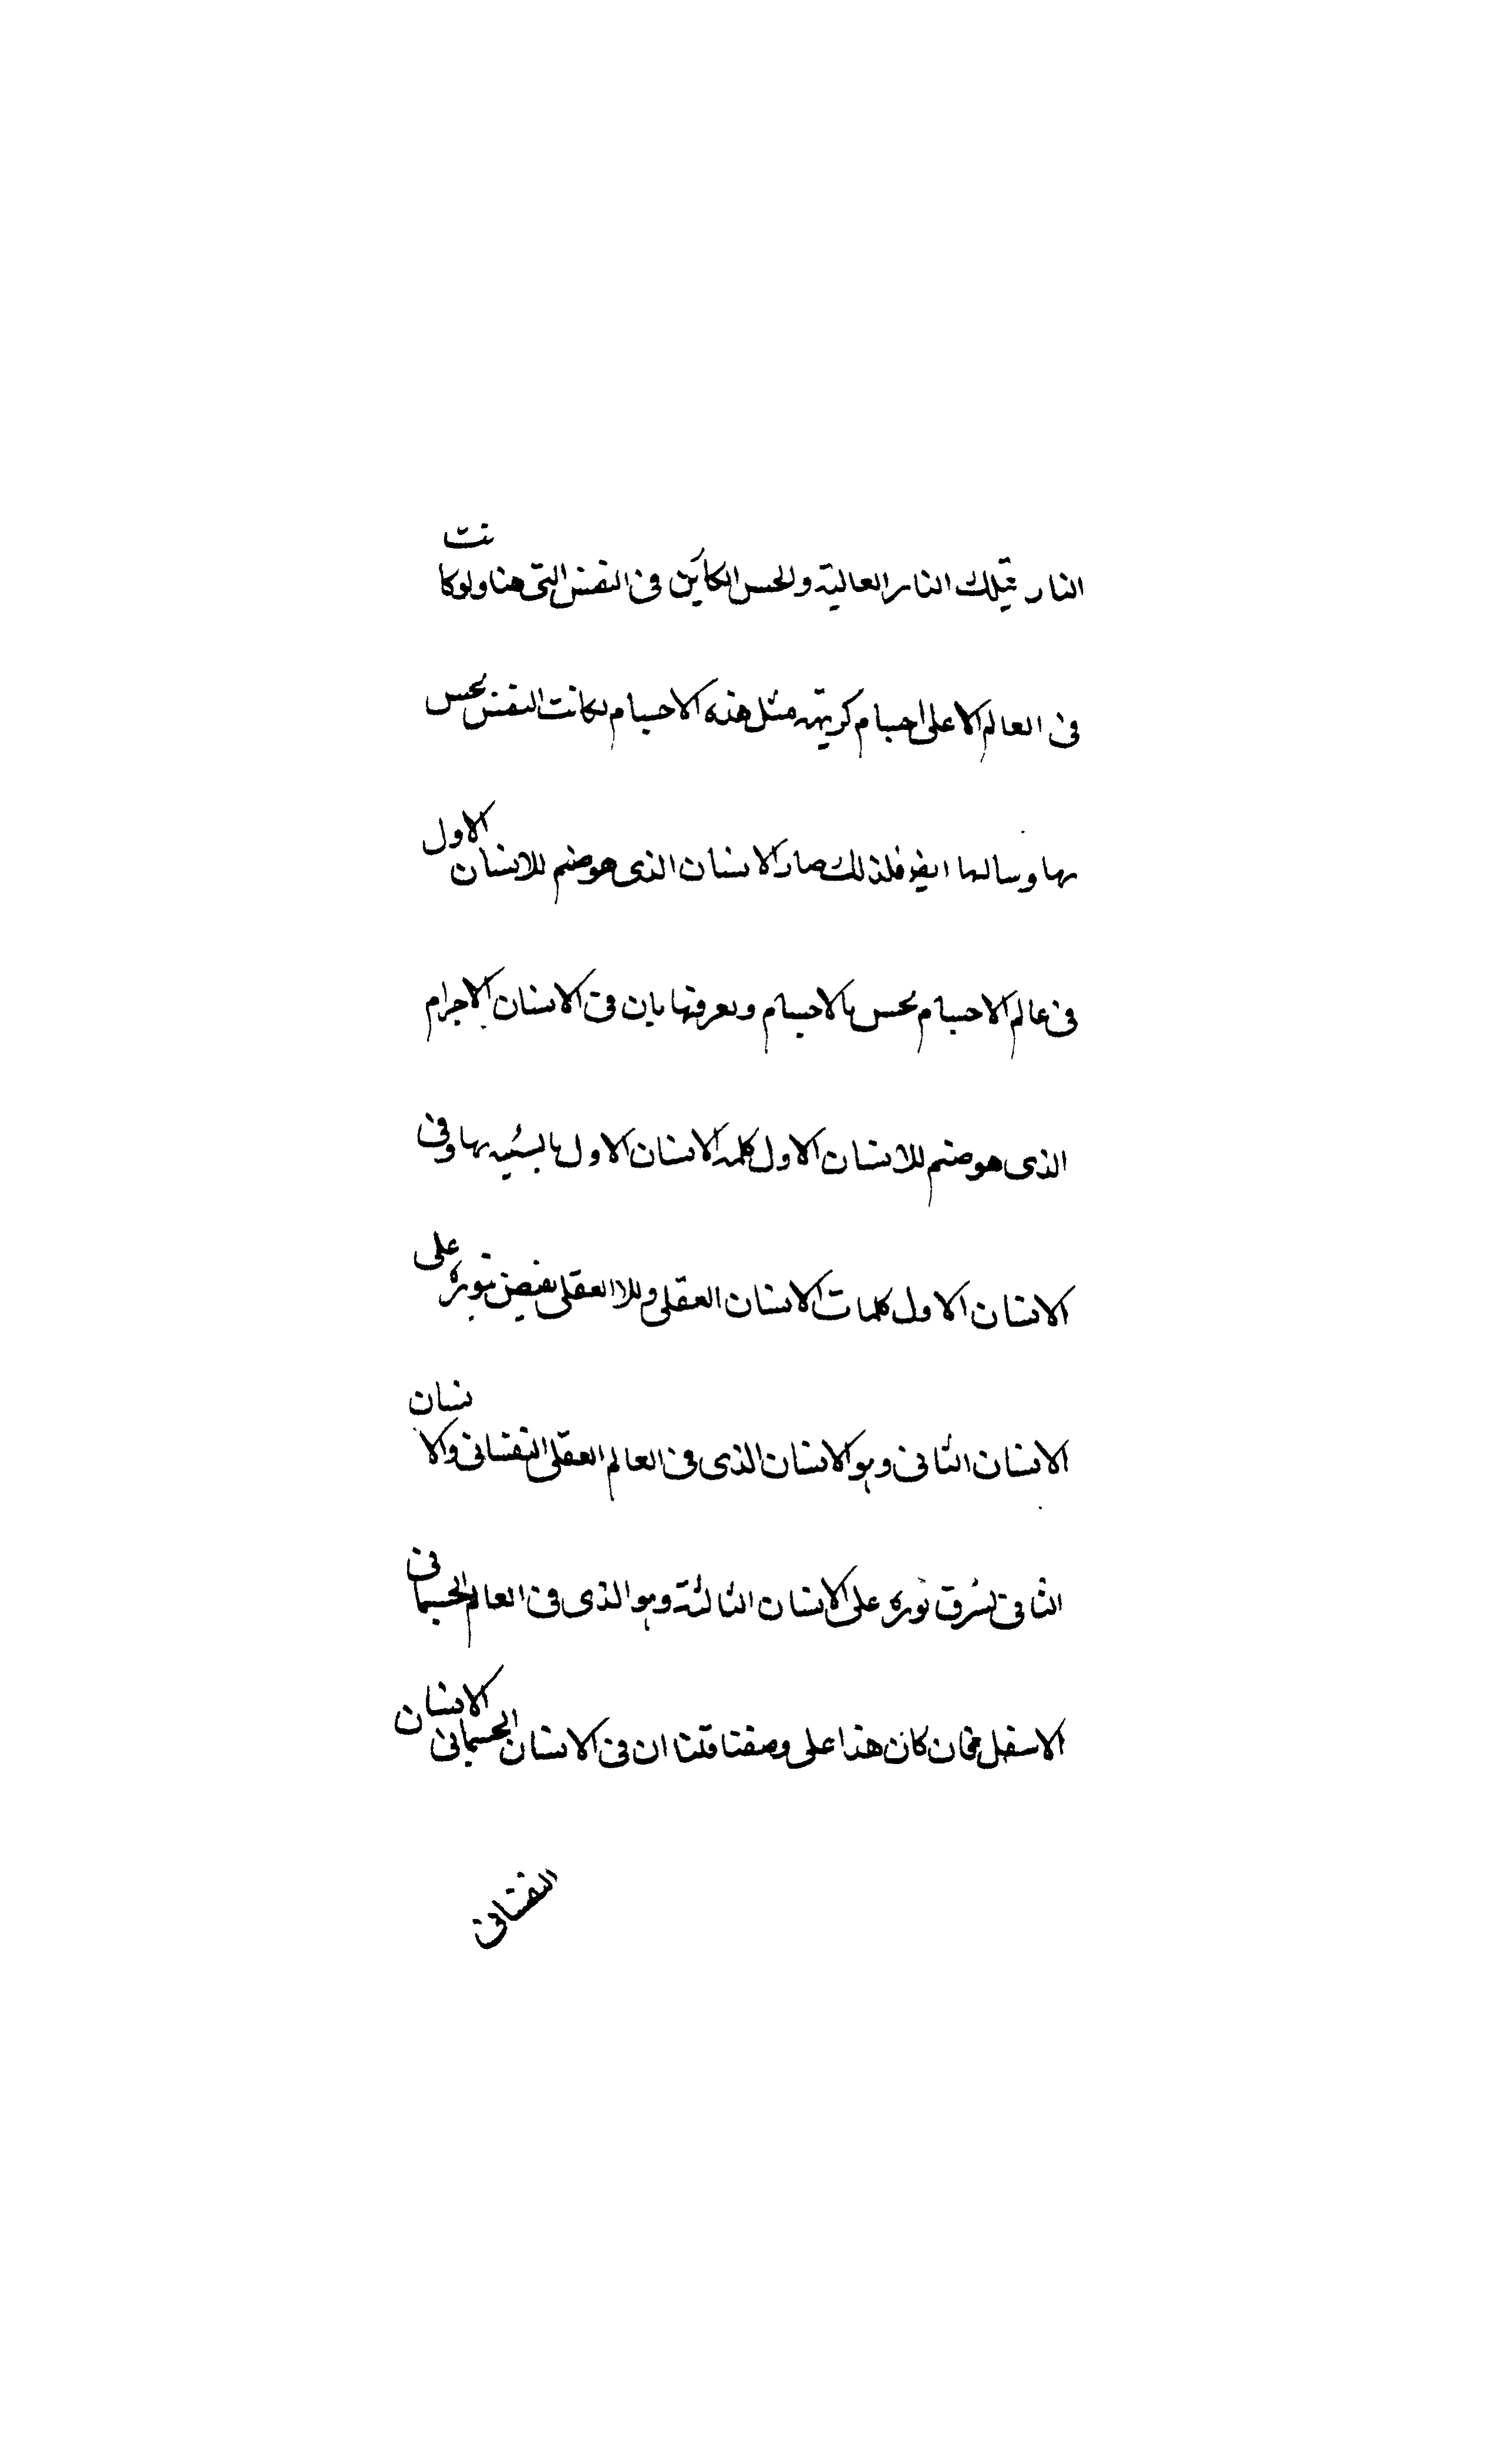 النار بتلك النار العالية والحس الكائن فى النفس التى هنا ولوكانت
فى العالم الاعلى اجسام كريهة مثل هذه الاجسام لكانت النفس تحس
بها وسالها ايضا فلذلك صار الانسان الذى هو صنم للانسان الاول
فى عالم الاجسام يحس بالاجسام ويعرفها بان فى الانسان الاجرام
الذى هو صنم للانسان الاول كلمة الانسان الاول بالشبيه بها وفى
الانسان الاول كلمات الانسان العقلى وللا العقلى يفيض بنوره على
الانسان الثانى وهو الانسان الذى فى العالم العقلى النفسانى والانسان
الثانى يشرق نوره على الانسان الثالثة وهو الذى فى العالم الجسمانى
الاسفل فان كان هذا على وصفنا قلنا ان فى الانسان الجسمانى الانسان
النفسانى